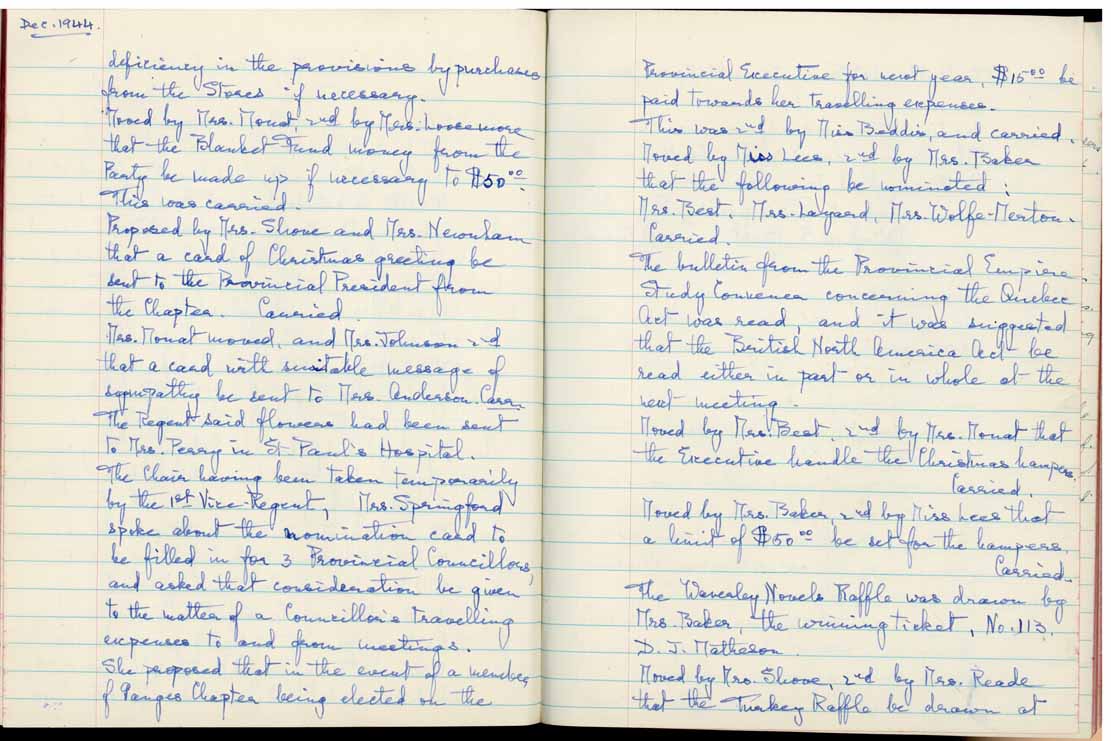 Dec. 1944.
deficiency in the provisions by purchases
from the Stores if necessary.
Moved by Mrs. Mouat, 2nd by Mrs. Loosemore
that the Blanket Fund money from the
Party be made up if necessary to $50.00
This was carried.
Proposed by Mrs. Shove and Mrs. Newnham
that a card of Christmas greeting be
sent to the Provincial President from
the Chapter. Carried.
Mrs. Mouat moved, and Mrs. Johnson 2nd
that a card with suitable message of
sympathy be sent to Mrs. Anderson. Carr.
The Regent said flowers had been sent
to Mrs. Perry in St Paul's Hospital.
The Chair having been taken temporarily
by the 1st Vice-Regent, Mrs. Springford
spoke about the nomination card to
be filled in for 3 Provincial Councillors,
and asked that consideration be given
to the matter of a Councillor's travelling
expenses to and from meetings.
She proposed that in the event of a member
of Ganges Chapter being elected on the
Provincial Executive for next year, $15.00 be
paid towards her travelling expenses.
This was 2nd by Miss Beddis, and carried.
Moved by Miss Lees, 2nd by Mrs. Baker
that the following be nominated:
Mrs. Best, Mrs. Layard, Mrs. Wolfe-Merton.
Carried.
The bulletin from the Provincial Empire
Study Convener concerning the Quebec
Act was read, and it was suggested
that the British North America Act be
read either in part or in whole at the
next meeting.
Moved by Mrs. Best, 2nd by Mrs. Mouat that
the Executive handle the Christmas hampers.
Carried.
Moved by Mrs. Baker, 2nd by Miss Lees that
a limit of $50.00 be set for the hampers.
Carried.
The Waverley Novels Raffle was drawn by
Mrs. Baker, the winning ticket, No. 113,
D. J. Matheson.
Moved by Mrs. Shove, 2nd by Mrs. Reade
that the Turkey Raffle be drawn at